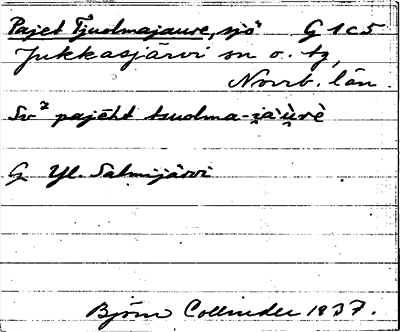 Pajet Tjuolmajaure, sjö G 1 c 5
Jukkasjärvi sn o. tg,
Norrb. län.
Sv² pajēht tuolma-jaùrè
G Yl. Salmijärvi
Björn Collinder 1937.